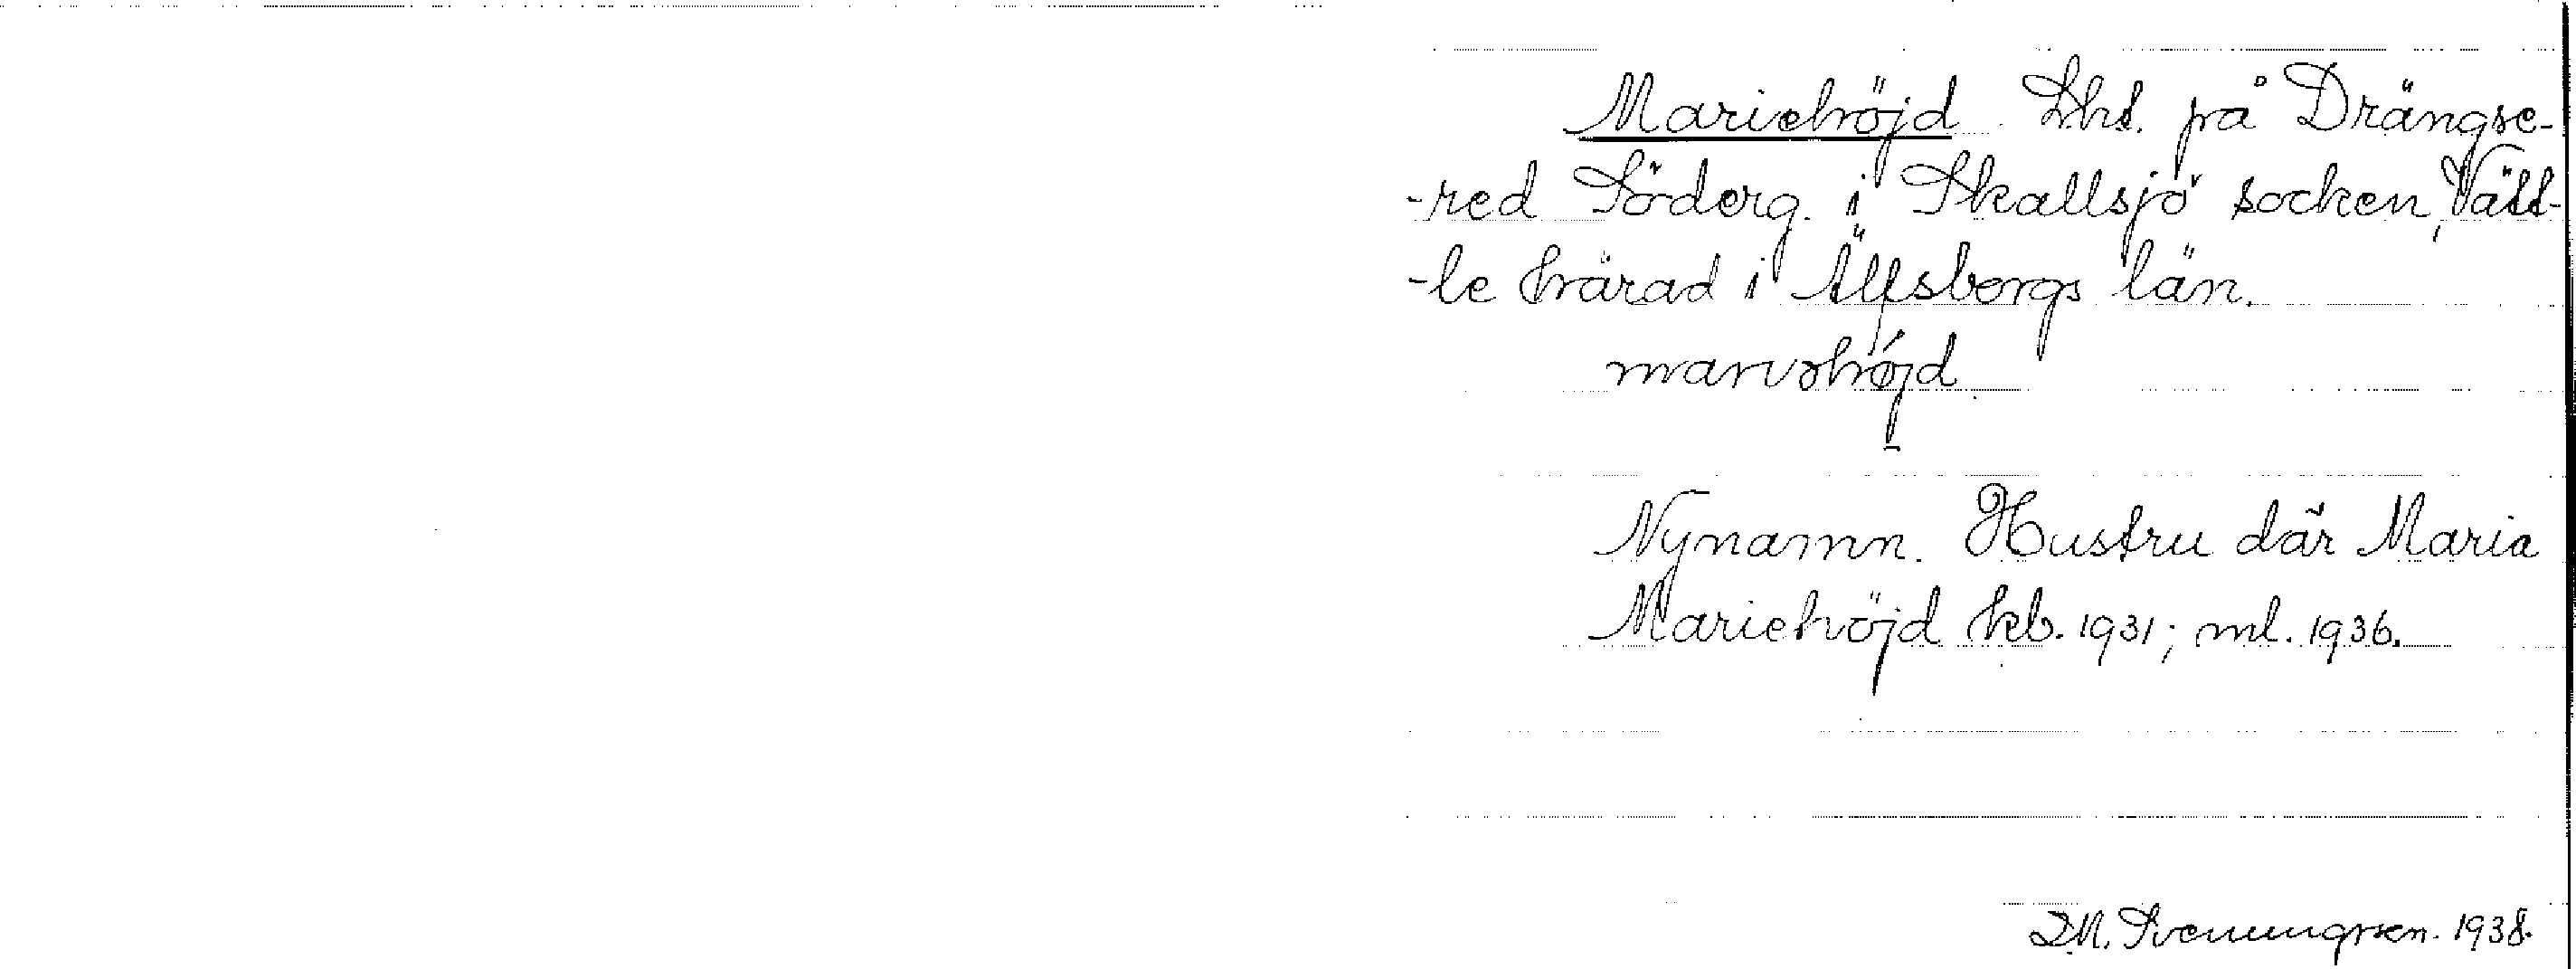 Mariehöjd Lht. på Drängse-
-red Söderg. i Skallsjö socken, Vätt-
-le härad i Älfsborgs län.
Nynamn. Hustru där Maria
Mariehöjd kb. 1931; ml. 1936.
D.M. Svenungsson. 1938.